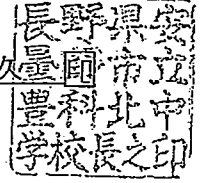 久
長野県安
曇野市立
豊科北中
学校長之印